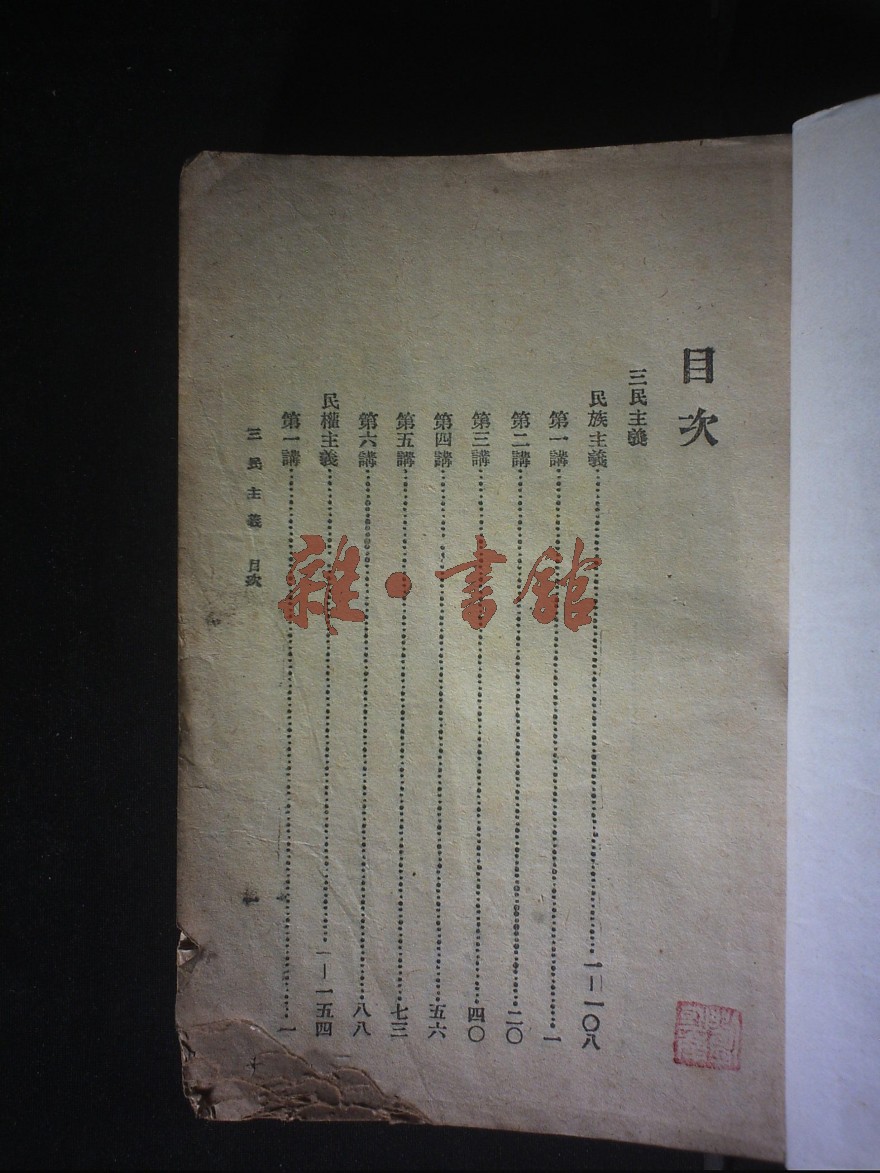 目次
三民主義
民族主義……一—一〇八
第一講……一
第二講……二〇
第三講……四〇
第四講……五六
第五講……七三
第六講……八八
民權主義……一—一五四
第一講……一
三民主義 目次
一
雜·書館